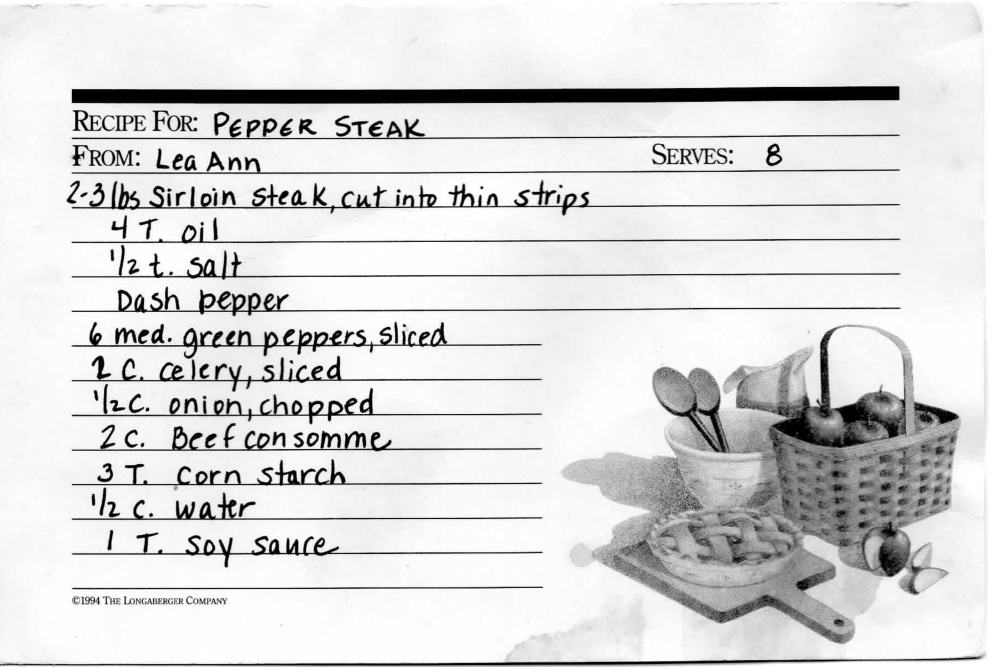 RECIPE FOR: PEPPER STEAK
FROM: Lea Ann SERVES: 8
2-3 lbs Sirloin steak, cut into thin strips
4 T. oil
1/2 t. salt
Dash pepper
6 med. green peppers, sliced
2 C. celery, sliced
1/2 C. onion, chopped
2 C. Beef consomme
3 T. corn starch
1/2 C. water
1 T. soy sauce
©1994 THE LONGABERGER COMPANY